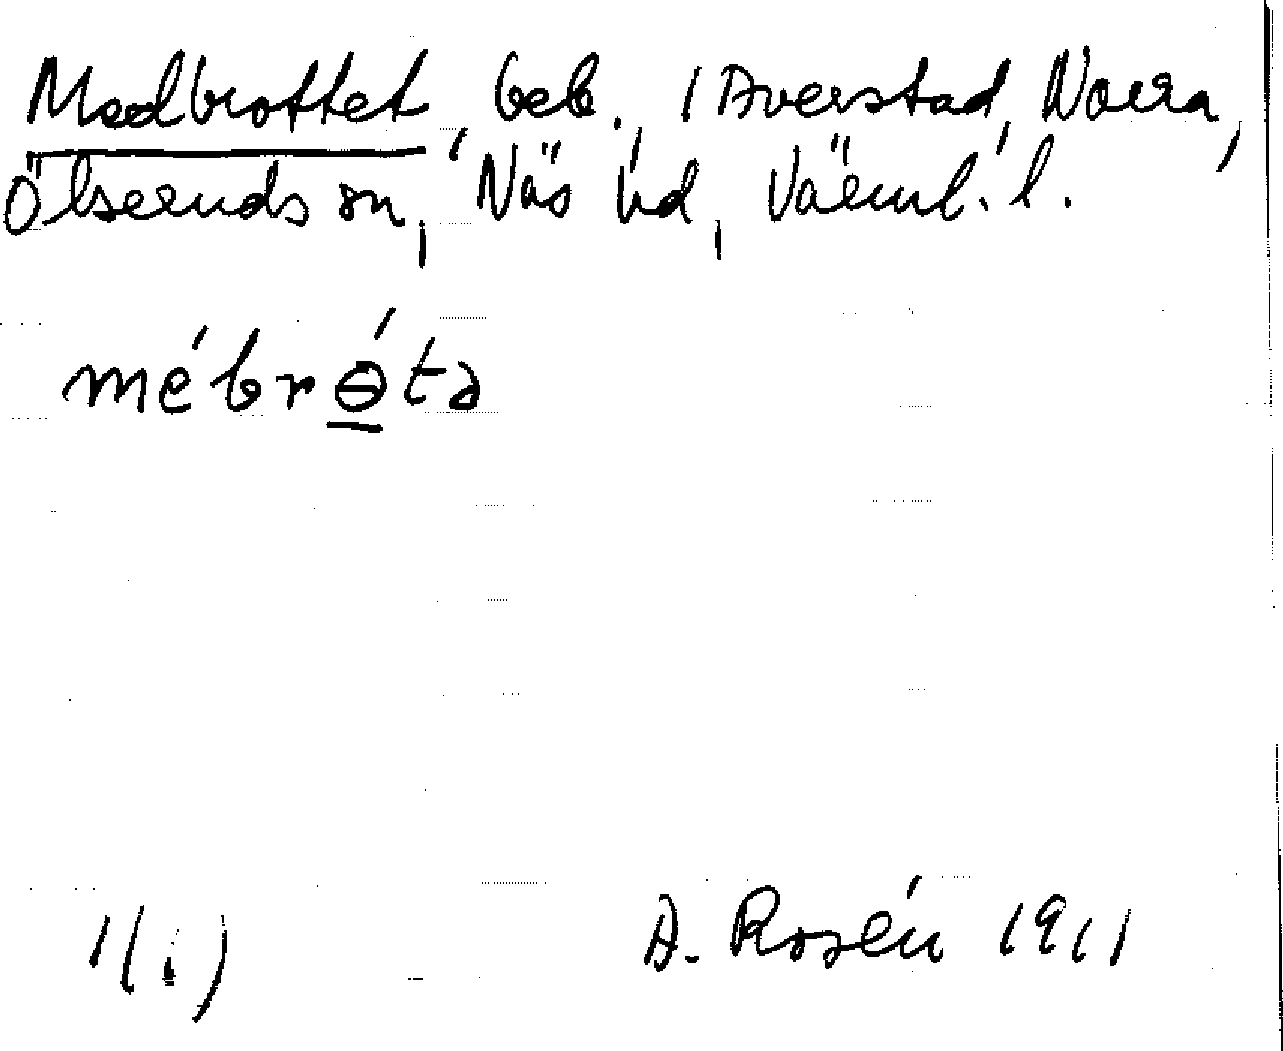 Medbrottet, beb. i Averstad, Norra,
Ölseruds sn, Näs hd, Värml. l.
mébrɵ́ta
1(i)
A. Rosén 1911